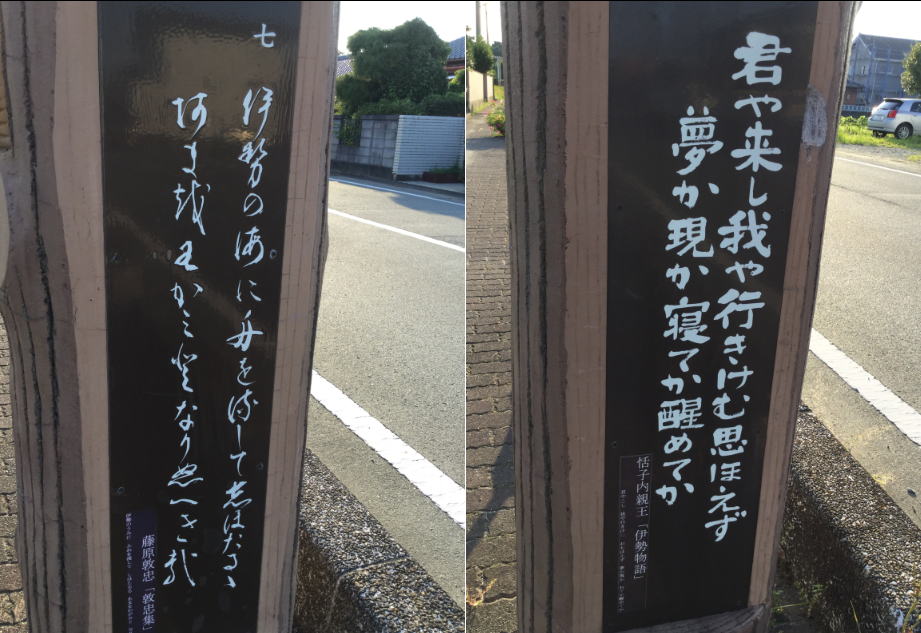 七 伊勢の海に舟を流して志ほたるゝ
阿ま越王か三登なりぬへき哉
藤原敦忠「敦忠集」
君や来し我や行きけむ思ほえず
夢か現か寝てか醒めてか
恬子内親王「伊勢物語」